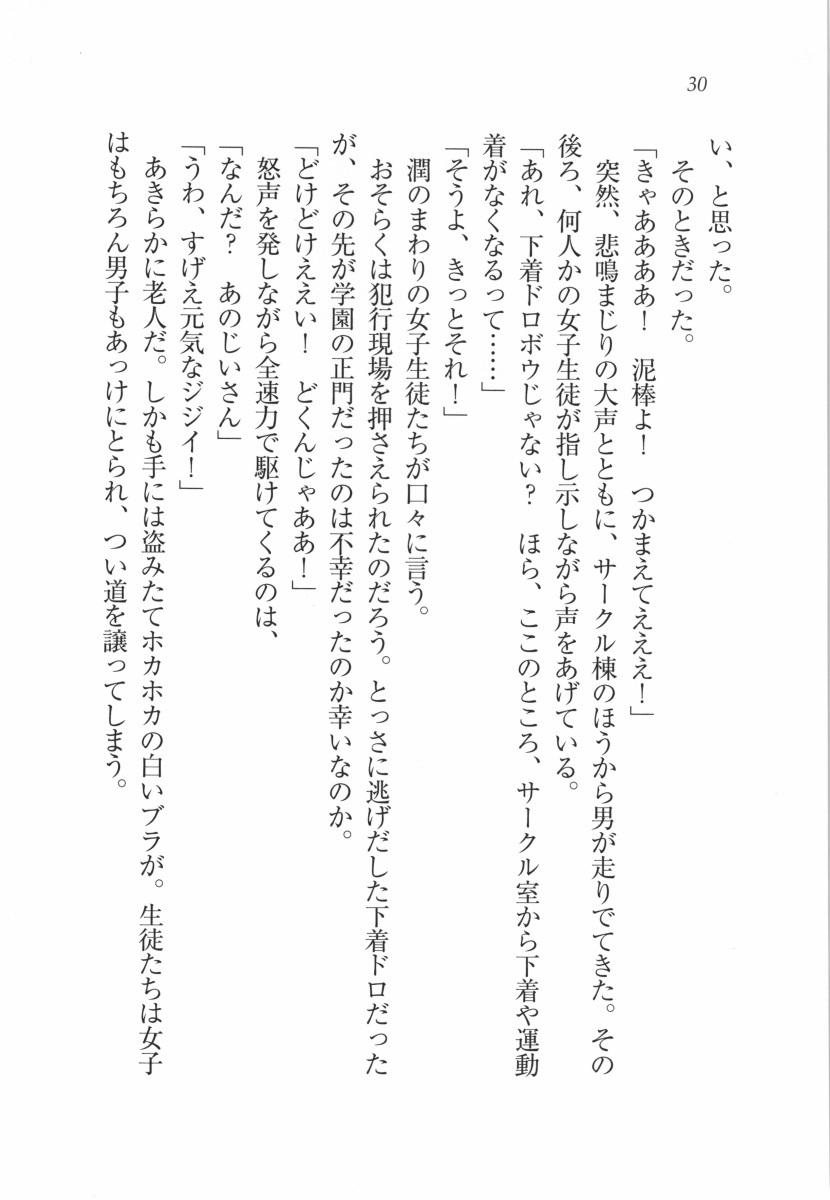 30
い、と思った。
そのときだった。
「きゃああああ！　泥棒よ！　つかまえてえええ！」
突然、悲鳴まじりの大声とともに、サークル棟のほうから男が走りでてきた。その
後ろ、何人かの女子生徒が指し示しながら声をあげている。
「あれ、下着ドロボウじゃない？　ほら、ここのところ、サークル室から下着や運動
着がなくなるって……」
「そうよ、きっとそれ！」
潤のまわりの女子生徒たちが口々に言う。
おそらくは犯行現場を押さえられたのだろう。とっさに逃げだした下着ドロだった
が、その先が学園の正門だったのは不幸だったのか幸いなのか。
「どけどけええい！　どくんじゃああ！」
怒声を発しながら全速力で駆けてくるのは、
「なんだ？　あのじいさん」
「うわ、すげえ元気なジジイ！」
あきらかに老人だ。しかも手には盗みたてホカホカの白いブラが。生徒たちは女子
はもちろん男子もあっけにとられ、つい道を譲ってしまう。